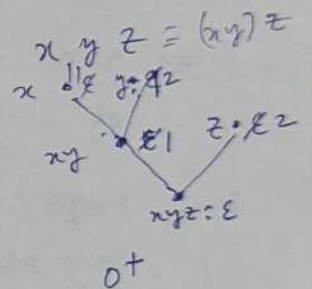 x y z ≡ (xy) z
x y: 2
xy ε1 z: ε2
xyz: ε
0+